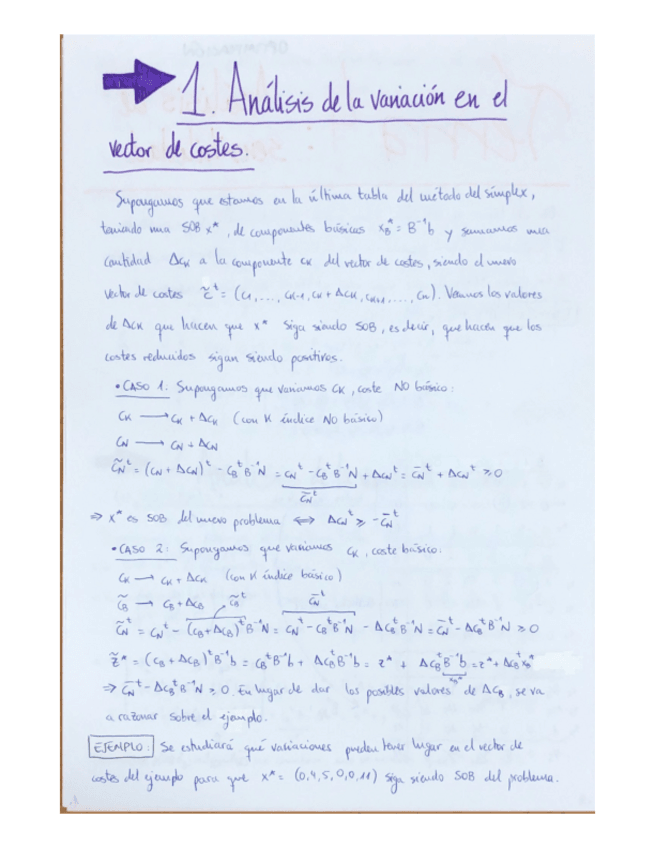 1. Análisis de la variación en el
vector de costes.
Supongamos que estamos en la última tabla del método del simplex,
teniendo una SOB x*, de componentes básicas x_B* = B⁻¹b y sumamos una
cantidad Δc_K a la componente c_K del vector de costes, siendo el nuevo
vector de costes c̃ᵗ = (c₁,..., c_{K-1}, c_K + Δc_K, c_{K+1},..., c_n). Veamos los valores
de Δc_K que hacen que x* siga siendo SOB, es decir, que hacen que los
costes reducidos sigan siendo positivos.
• CASO 1: Supongamos que variamos c_K, coste NO básico:
c_K → c_K + Δc_K (con K índice NO básico)
c_N → c_N + Δc_N
c̃_Nᵗ = (c_N + Δc_N)ᵗ - c_Bᵗ B⁻¹N = c_Nᵗ - c_Bᵗ B⁻¹N + Δc_Nᵗ = c̄_Nᵗ + Δc_Nᵗ ≥ 0
c̄_Nᵗ
⇒ x* es SOB del nuevo problema ⟺ Δc_Nᵗ ≥ -c̄_Nᵗ
• CASO 2: Supongamos que variamos c_K, coste básico:
c_K → c_K + Δc_K (con K índice básico)
c̃_B → c_B + Δc_B c̃_Bᵗ c̄_Nᵗ
c̃_Nᵗ = c_Nᵗ - (c_B + Δc_B)ᵗ B⁻¹N = c_Nᵗ - c_Bᵗ B⁻¹N - Δc_Bᵗ B⁻¹N = c̄_Nᵗ - Δc_Bᵗ B⁻¹N ≥ 0
z̃* = (c_B + Δc_B)ᵗ B⁻¹b = c_Bᵗ B⁻¹b + Δc_Bᵗ B⁻¹b = z* + Δc_Bᵗ B⁻¹b = z* + Δc_Bᵗ x_B*
x_B*
⇒ c̄_Nᵗ - Δc_Bᵗ B⁻¹N ≥ 0. En lugar de dar los posibles valores de Δc_B, se va
a razonar sobre el ejemplo.
EJEMPLO: Se estudiará qué variaciones pueden tener lugar en el vector de
costes del ejemplo para que x* = (0,4,5,0,0,11) siga siendo SOB del problema.